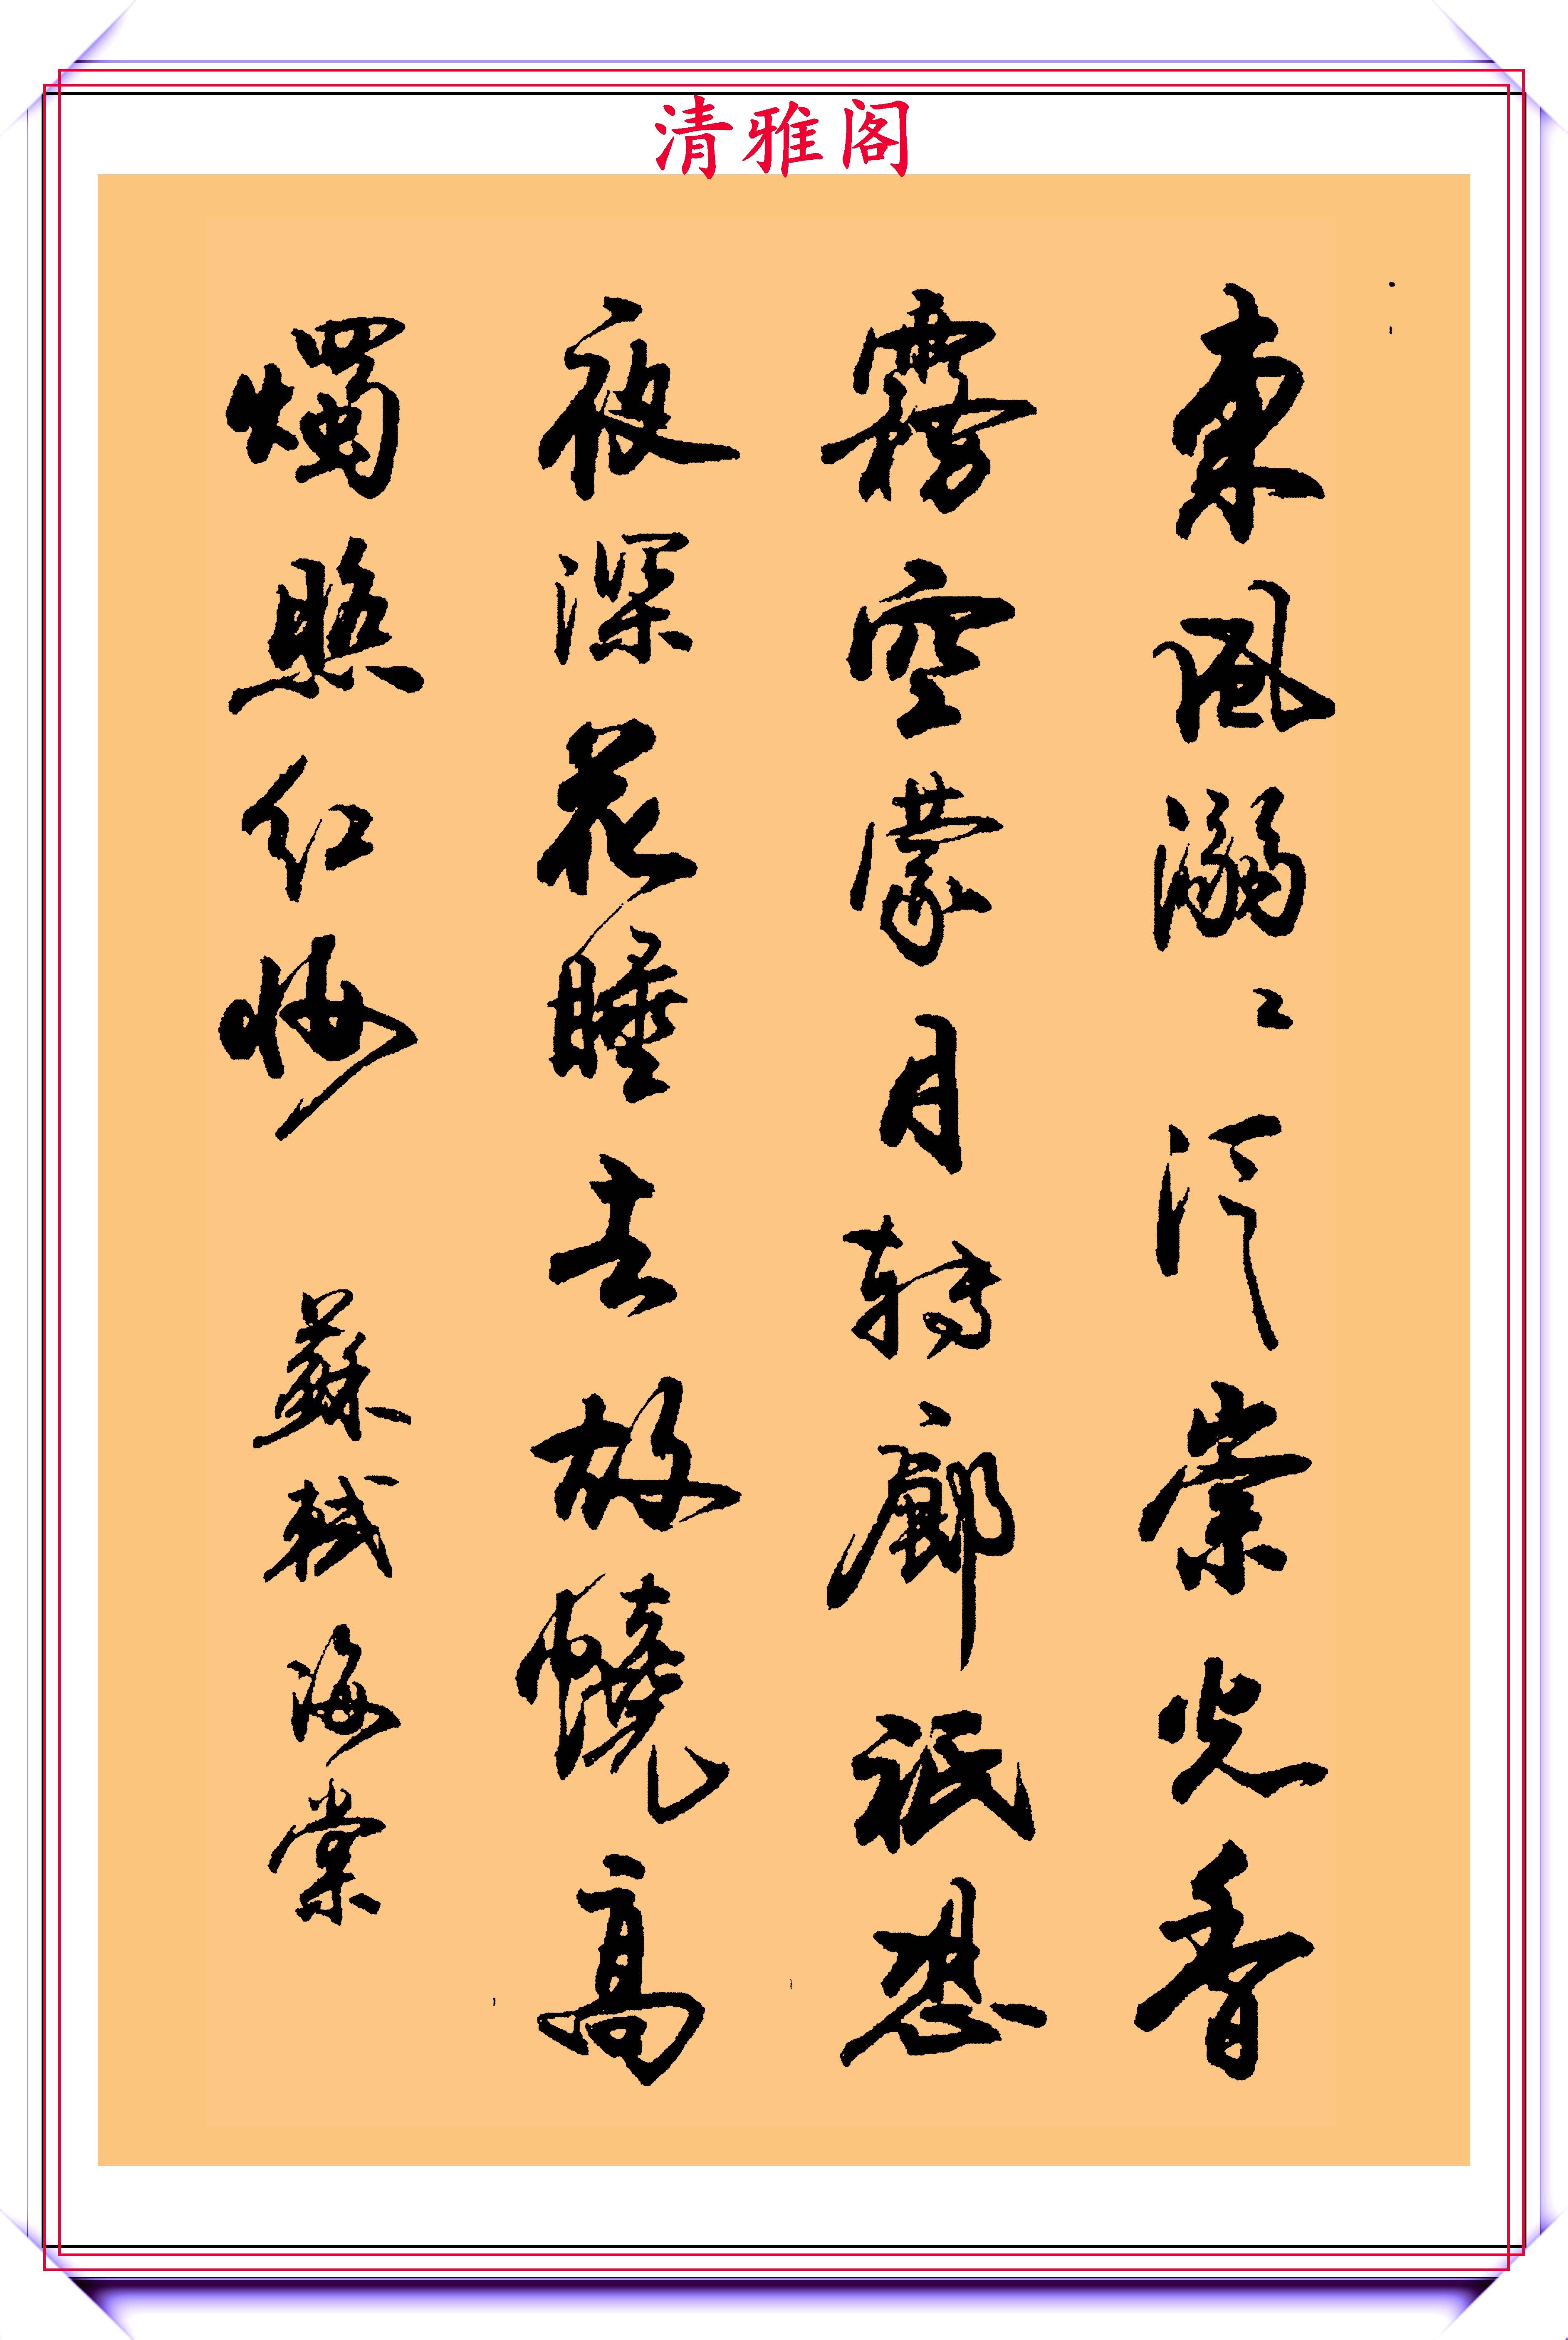 清雅阁
東風溺〻泛崇光香
霧空蒙月轉廊祇恐
夜深花睡去故燒高
燭照紅妝 蘇軾海棠